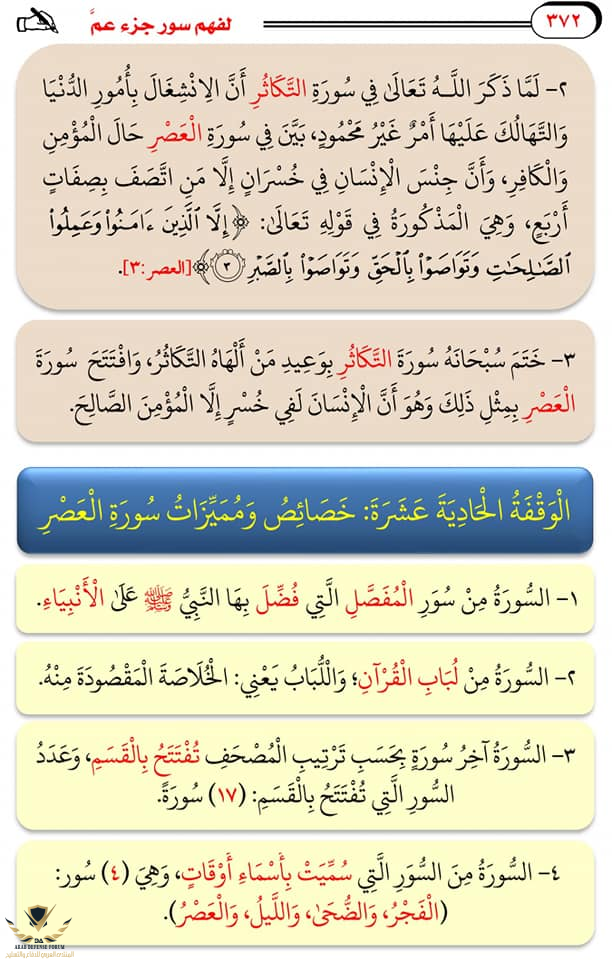 ٣٧٢
لفهم سور جزء عمَّ
٢- لَمَّا ذَكَرَ اللَّـهُ تَعَالَىٰ فِي سُورَةِ التَّكَاثُرِ أَنَّ الِانْشِغَالَ بِأُمُورِ الدُّنْيَا
وَالتَّهَالُكَ عَلَيْهَا أَمْرٌ غَيْرُ مَحْمُودٍ، بَيَّنَ فِي سُورَةِ الْعَصْرِ حَالَ الْمُؤْمِنِ
وَالْكَافِرِ، وَأَنَّ جِنْسَ الْإِنْسَانِ فِي خُسْرَانٍ إِلَّا مَنِ اتَّصَفَ بِصِفَاتٍ
أَرْبَعٍ، وَهِيَ الْمَذْكُورَةُ فِي قَوْلِهِ تَعَالَىٰ: ﴿إِلَّا الَّذِينَ ءَامَنُوا۟ وَعَمِلُوا۟
الصَّـٰلِحَـٰتِ وَتَوَاصَوْا۟ بِالْحَقِّ وَتَوَاصَوْا۟ بِالصَّبْرِ ٣﴾ [العصر:٣].
٣- خَتَمَ سُبْحَانَهُ سُورَةَ التَّكَاثُرِ بِوَعِيدِ مَنْ أَلْهَاهُ التَّكَاثُرُ، وَافْتَتَحَ سُورَةَ
الْعَصْرِ بِمِثْلِ ذَلِكَ وَهُوَ أَنَّ الْإِنْسَانَ لَفِي خُسْرٍ إِلَّا الْمُؤْمِنَ الصَّالِحَ.
الْوَقْفَةُ الْحَادِيَةَ عَشَرَةَ: خَصَائِصُ وَمُمَيِّزَاتُ سُورَةِ الْعَصْرِ
١- السُّورَةُ مِنْ سُوَرِ الْمُفَصَّلِ الَّتِي فُضِّلَ بِهَا النَّبِيُّ ﷺ عَلَىٰ الْأَنْبِيَاءِ.
٢- السُّورَةُ مِنْ لُبَابِ الْقُرْآنِ؛ وَاللُّبَابُ يَعْنِي: الْخُلَاصَةَ الْمَقْصُودَةَ مِنْهُ.
٣- السُّورَةُ آخِرُ سُورَةٍ بِحَسَبِ تَرْتِيبِ الْمُصْحَفِ تُفْتَتَحُ بِالْقَسَمِ، وَعَدَدُ
السُّوَرِ الَّتِي تُفْتَتَحُ بِالْقَسَمِ: (١٧) سُورَةً.
٤- السُّورَةُ مِنَ السُّوَرِ الَّتِي سُمِّيَتْ بِأَسْمَاءِ أَوْقَاتٍ، وَهِيَ (٤) سُوَر:
(الْفَجْرُ، وَالضُّحَىٰ، وَاللَّيلُ، وَالْعَصْرُ).
DA
ARAB DEFENSE FORUM
المنتدى العربي للدفاع والتسليح